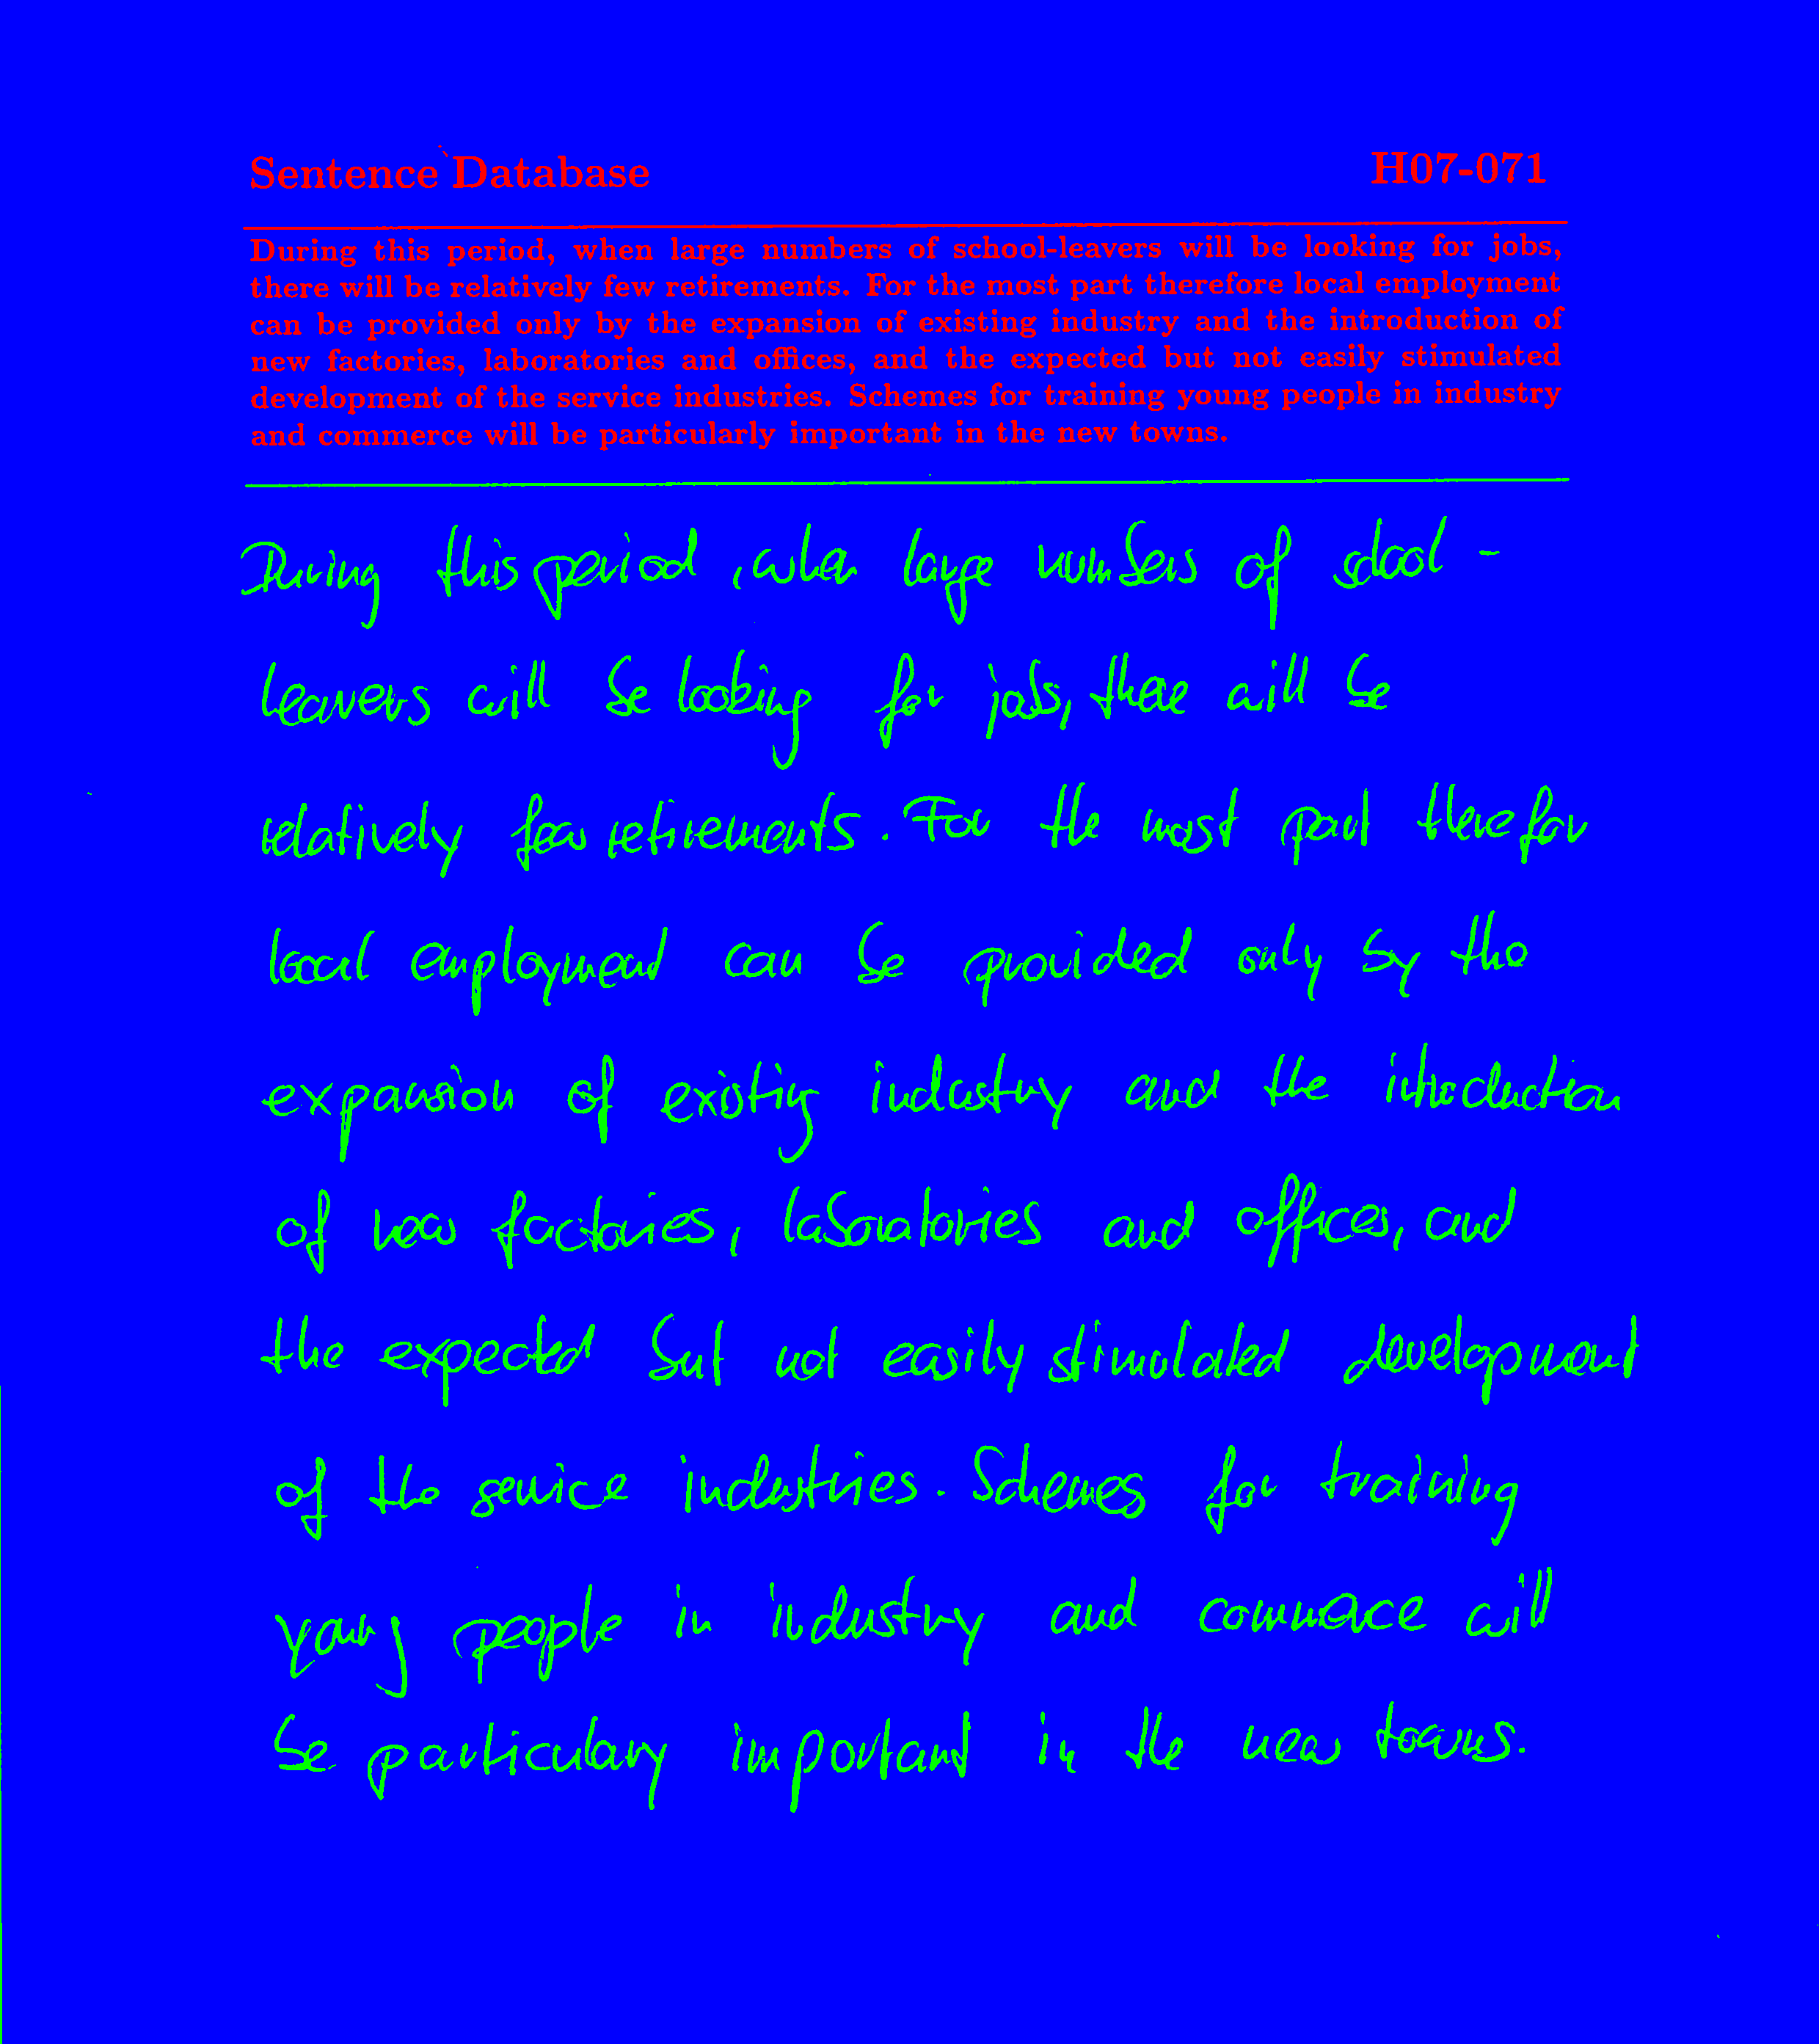 Sentence Database H07-071
During this period, when large numbers of school-leavers will be looking for jobs,
there will be relatively few retirements. For the most part therefore local employment
can be provided only by the expansion of existing industry and the introduction of
new factories, laboratories and offices, and the expected but not easily stimulated
development of the service industries. Schemes for training young people in industry
and commerce will be particularly important in the new towns.
During this period, when large numbers of school-
leavers will be looking for jobs, there will be
relatively few retirements. For the most part therefor
local employment can be provided only by the
expansion of existing industry and the introduction
of new factories, laboratories and offices, and
the expected but not easily stimulated development
of the service industries. Schemes for training
young people in industry and commerce will
be particulary important in the new towns.